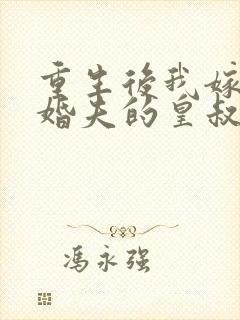 重生後我嫁
婚夫的皇叔
冯永强